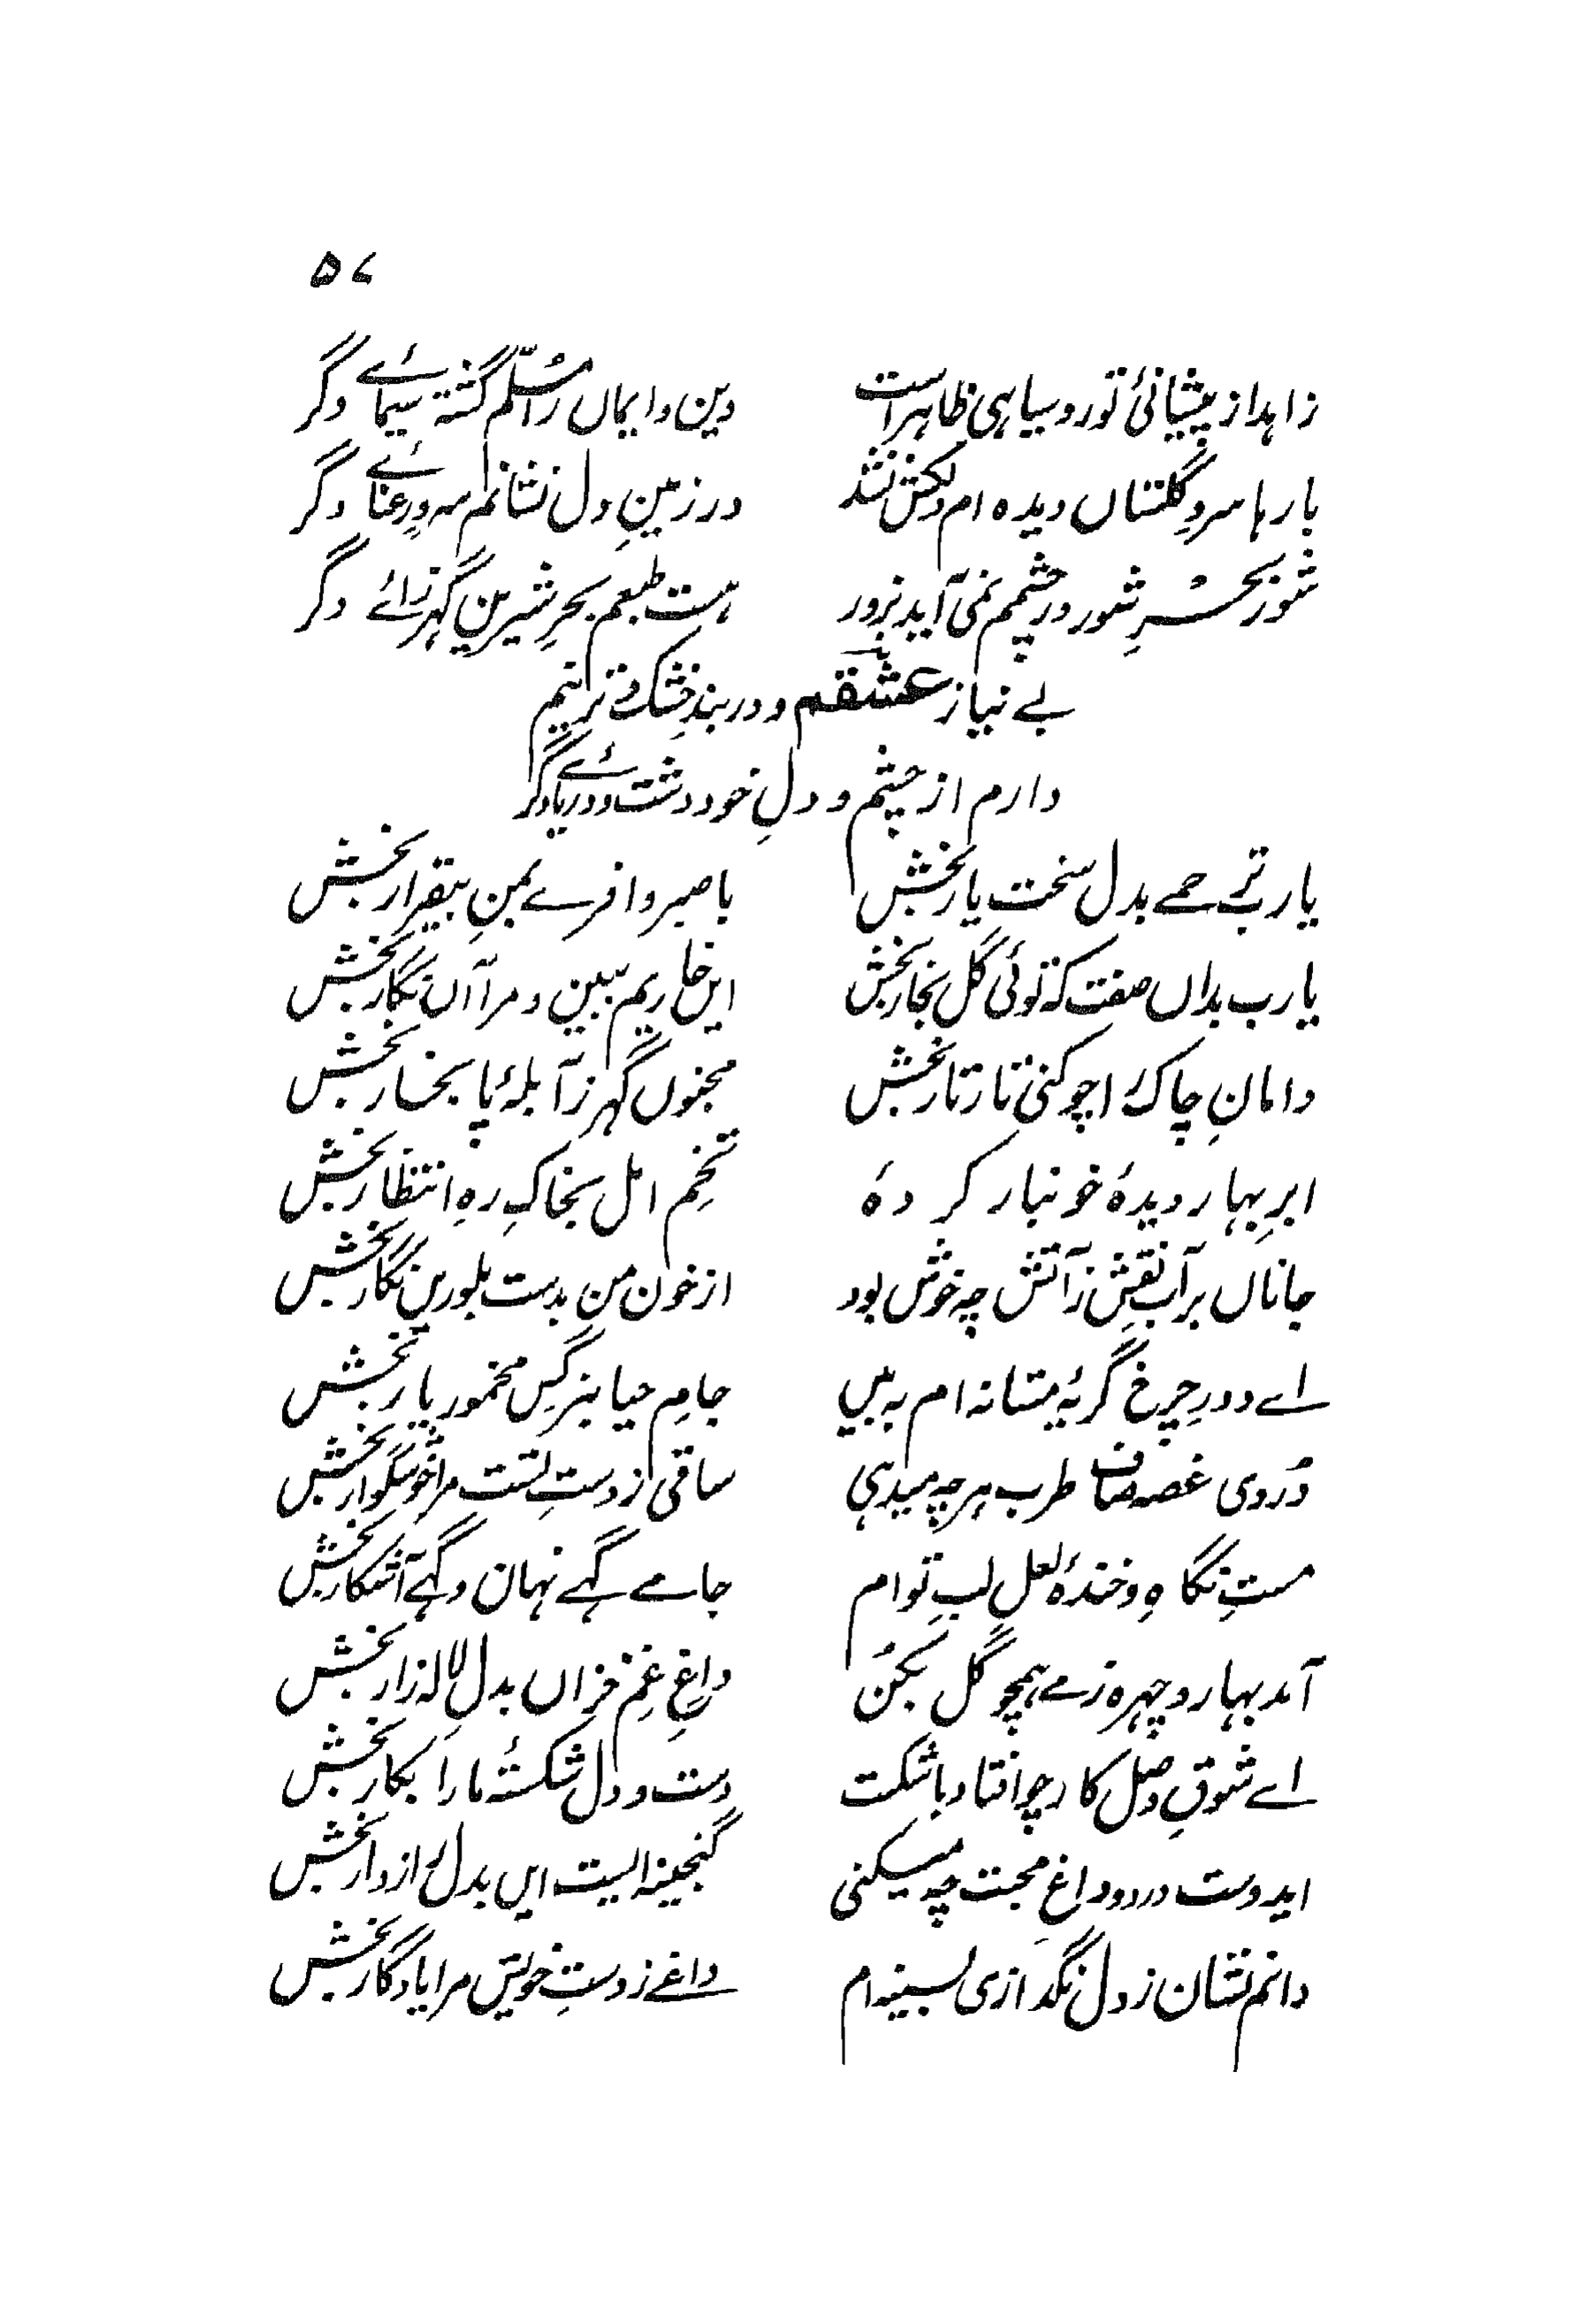 ۵۷
زاہد از پیشانیٔ تو روسیاہی ظاہر است دین و ایماں را مُسلّم گشتہ سیمائے دگر
بارہا سروِ گلستاں دیدہ ام دلکش نشد در زمینِ دل نشانم سروِ رعنائے دگر
شور بحرِ شور در چشمم نمی آید بزور ہست طبعم بحرِ شیرین گہرزائے دگر
بے نیاز عشقم و در بندِ خشک و تر نیم
دارم از چشم و دلِ خود دشت و دریائے دگر
یارب ترحمے بدل سخت یار بخش یا صبر وافرے بمنِ بیقرار بخش
یارب بداں صفت کہ توئی گل بخار بخش ایں خاریم ببین و مرا آں نگار بخش
دامانِ چاک را چو کنی تار تار بخش مجنوں گہر ز آبلۂ پا بخار بخش
ابرِ بہار دیدۂ خونبار کردۂ تخمِ امل بخاکِ رہِ انتظار بخش
جاناں بر آب نقش ز آتش چہ خوش بود از خون من بدست بلوریں نگار بخش
اے دورِ چرخ گریۂ مستانہ ام بہ بیں جامِ حیا بنرگسِ مخمور یار بخش
دُردی غصہ صاف طرب ہر چہ میدہی ساقی ز دستِ تست مرا خوشگوار بخش
مستِ نگاہِ و خندۂ لعلِ لبِ تو ام جامے گہے نہان و گہے آشکار بخش
آمد بہار و چہرہ ز مے ہمچو گل بکُن داغِ غمِ خزاں بدلِ لالہ زار بخش
اے شوقِ وصل کار چو افتاد با شکست دست و دل شکستۂ ما را بکار بخش
ایدوست درد و داغِ محبت چہ میکنی گنجینہ ایست ایں بدل راز دار بخش
دانم نشان ز دل نگدازی بسینہ ام داغے ز دستِ خویش مرا یادگار بخش